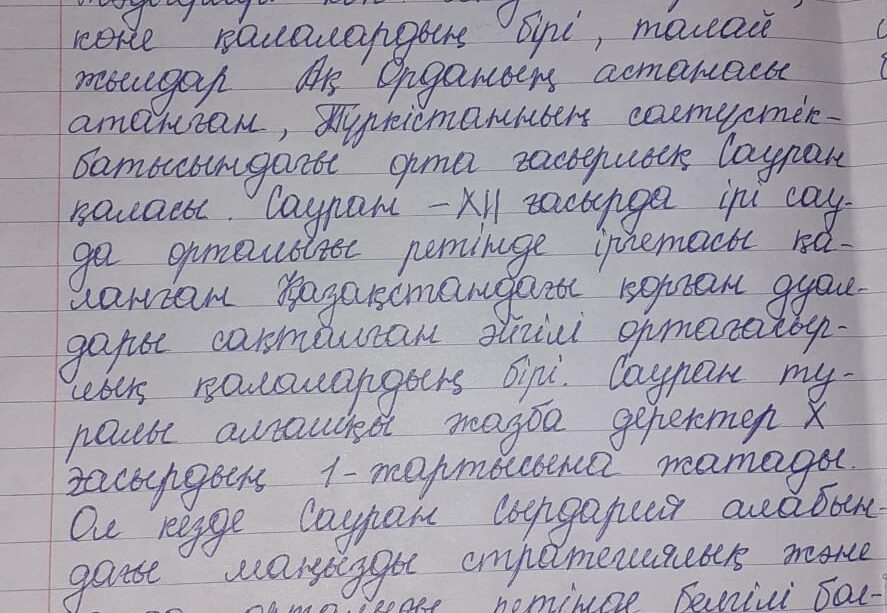 көне қалалардың бірі, талай
жылдар Ақ Орданың астанасы
атанған, Түркістанның солтүстік-
батысындағы орта ғасырлық Сауран
қаласы. Сауран – XII ғасырда ірі сау-
да орталығы ретінде іргетасы қа-
ланған Қазақстандағы қорған дуал-
дары сақталған әйгілі ортағасыр-
лық қалалардың бірі. Сауран ту-
ралы алғашқы жазба деректер X
ғасырдың 1-жартысына жатады.
Ол кезде Сауран Сырдария алабын-
дағы маңызды стратегиялық және
орталығы ретінде белгілі бол-